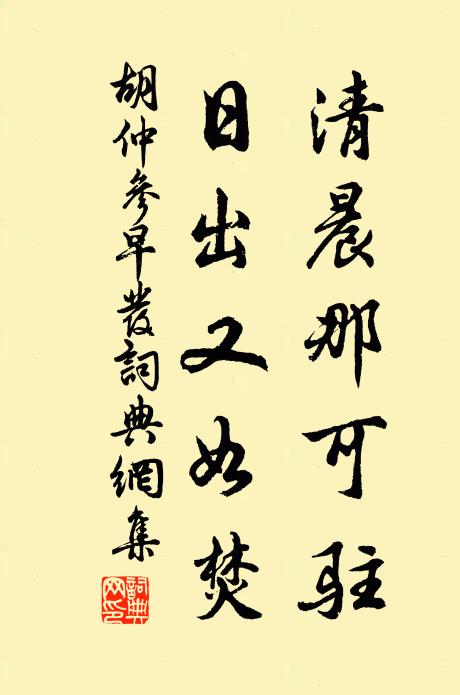 清晨那可駐
日出又如焚
胡仲參早發詞典網集
詞典網印